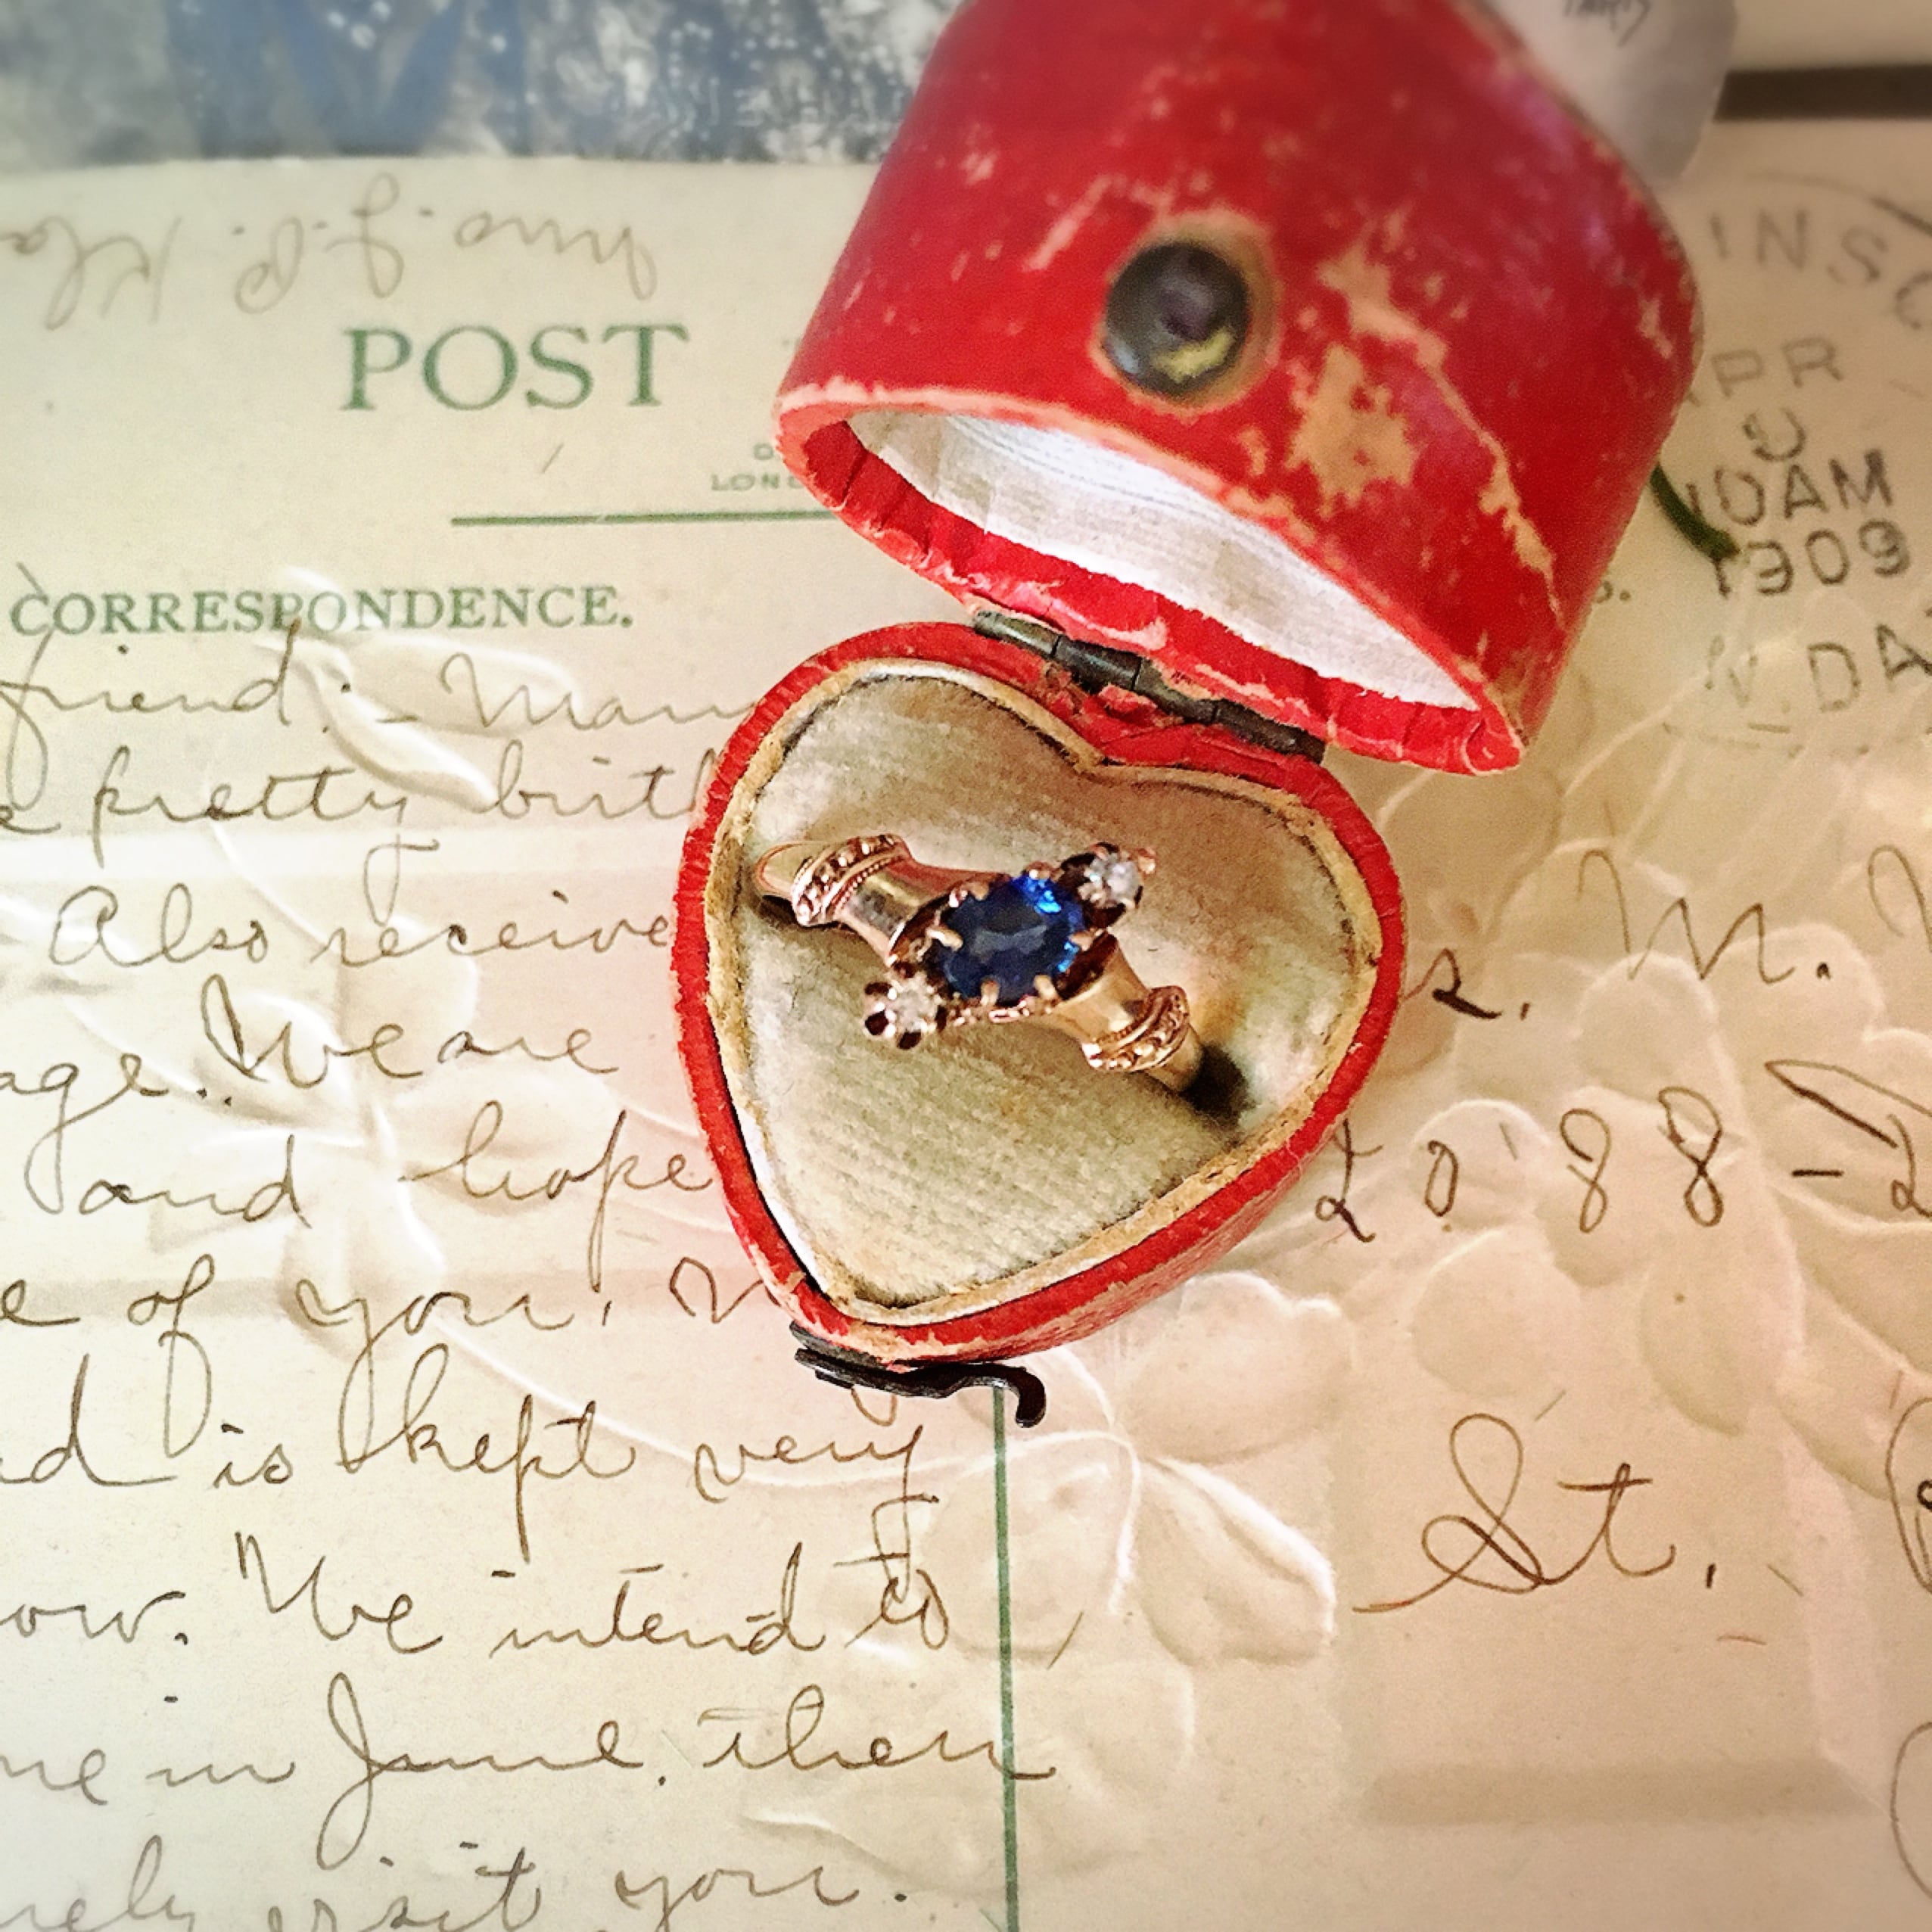 Mrs. J. P. Kla
POST
LON
CORRESPONDENCE.
friend. - Man
pretty birth
Also receive
age. We are
and hope
e of you.
d is kept very
ow. We intend to
me in June, then
visit you.
INSO
APR
10 AM
1909
N. DA
M.
2088-2
St.